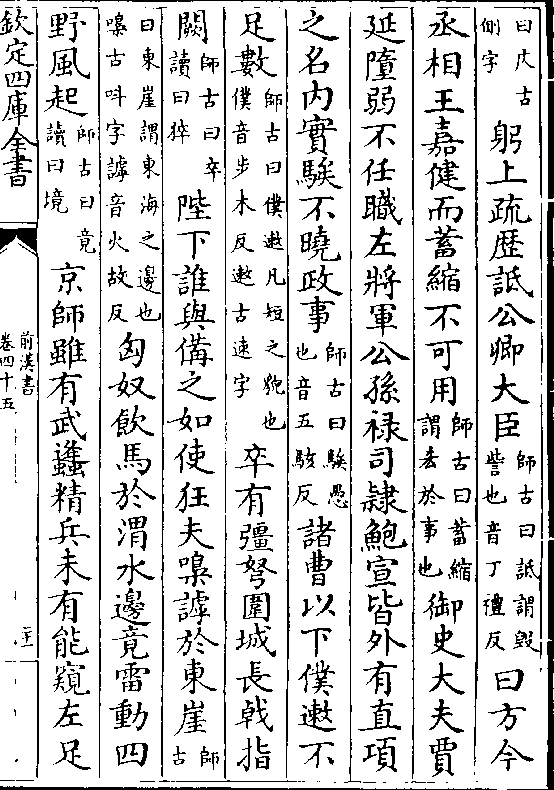 曰仄古側字躬上疏歴詆公卿大臣師古曰詆謂毀訾也音丁禮反曰方今
丞相王嘉健而蓄縮不可用師古曰蓄縮謂喪於事也御史大夫賈
延墯弱不任職左將軍公孫禄司隸鮑宣皆外有直項
之名内實騃不曉政事師古曰騃愚也音五駭反諸曹以下僕遬不
足數師古曰僕遬凡短之貌也僕音步木反遬古速字卒有彊弩圍城長戟指
闕師古曰卒讀曰猝陛下誰與備之如使狂夫嘄謼於東崖師古
曰東崖謂東海之邊也嘄古叫字謼音火故反匈奴飲馬於渭水邊竟雷動四
野風起師古曰竟讀曰境京師雖有武蠭精兵未有能窺左足
欽定四庫全書
前漢書
卷四十五